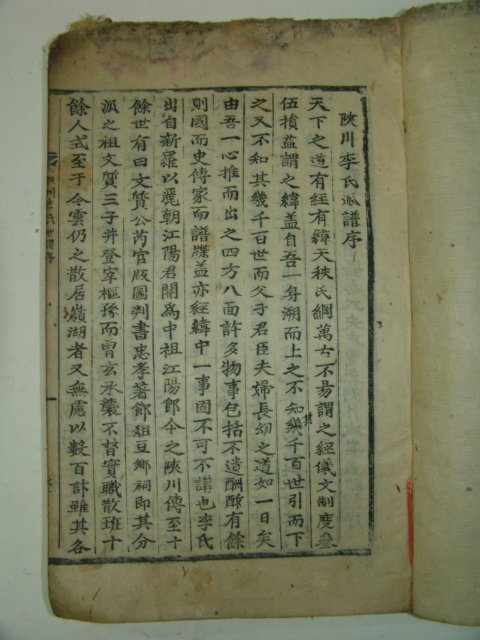 陜川李氏派譜序
天下之道有經有緯天秩民綱萬古不易謂之經儀文制度叅
伍損益謂之緯盖自吾一身溯而上之不知其幾千百世引而下
之又不知其幾千百世而父子君臣夫婦長幼之道如一日矣
由吾一心推而出之四方八面許多物事包括不遺酬酢有餘
則國而史傳家而譜牒盖亦經緯中一事固不可不講也李氏
出自新羅以麗朝江陽君開爲中祖江陽鄕今之陜川傳至十
餘世有曰文質公芮官版圖判書忠孝著鄕俎豆鄕祠即其分
派之祖文質三子并登宰樞孫而曾玄承襲不替實職散班十
餘人式至于今雲仍之散居嶺湖者又無慮以數百計雖其各